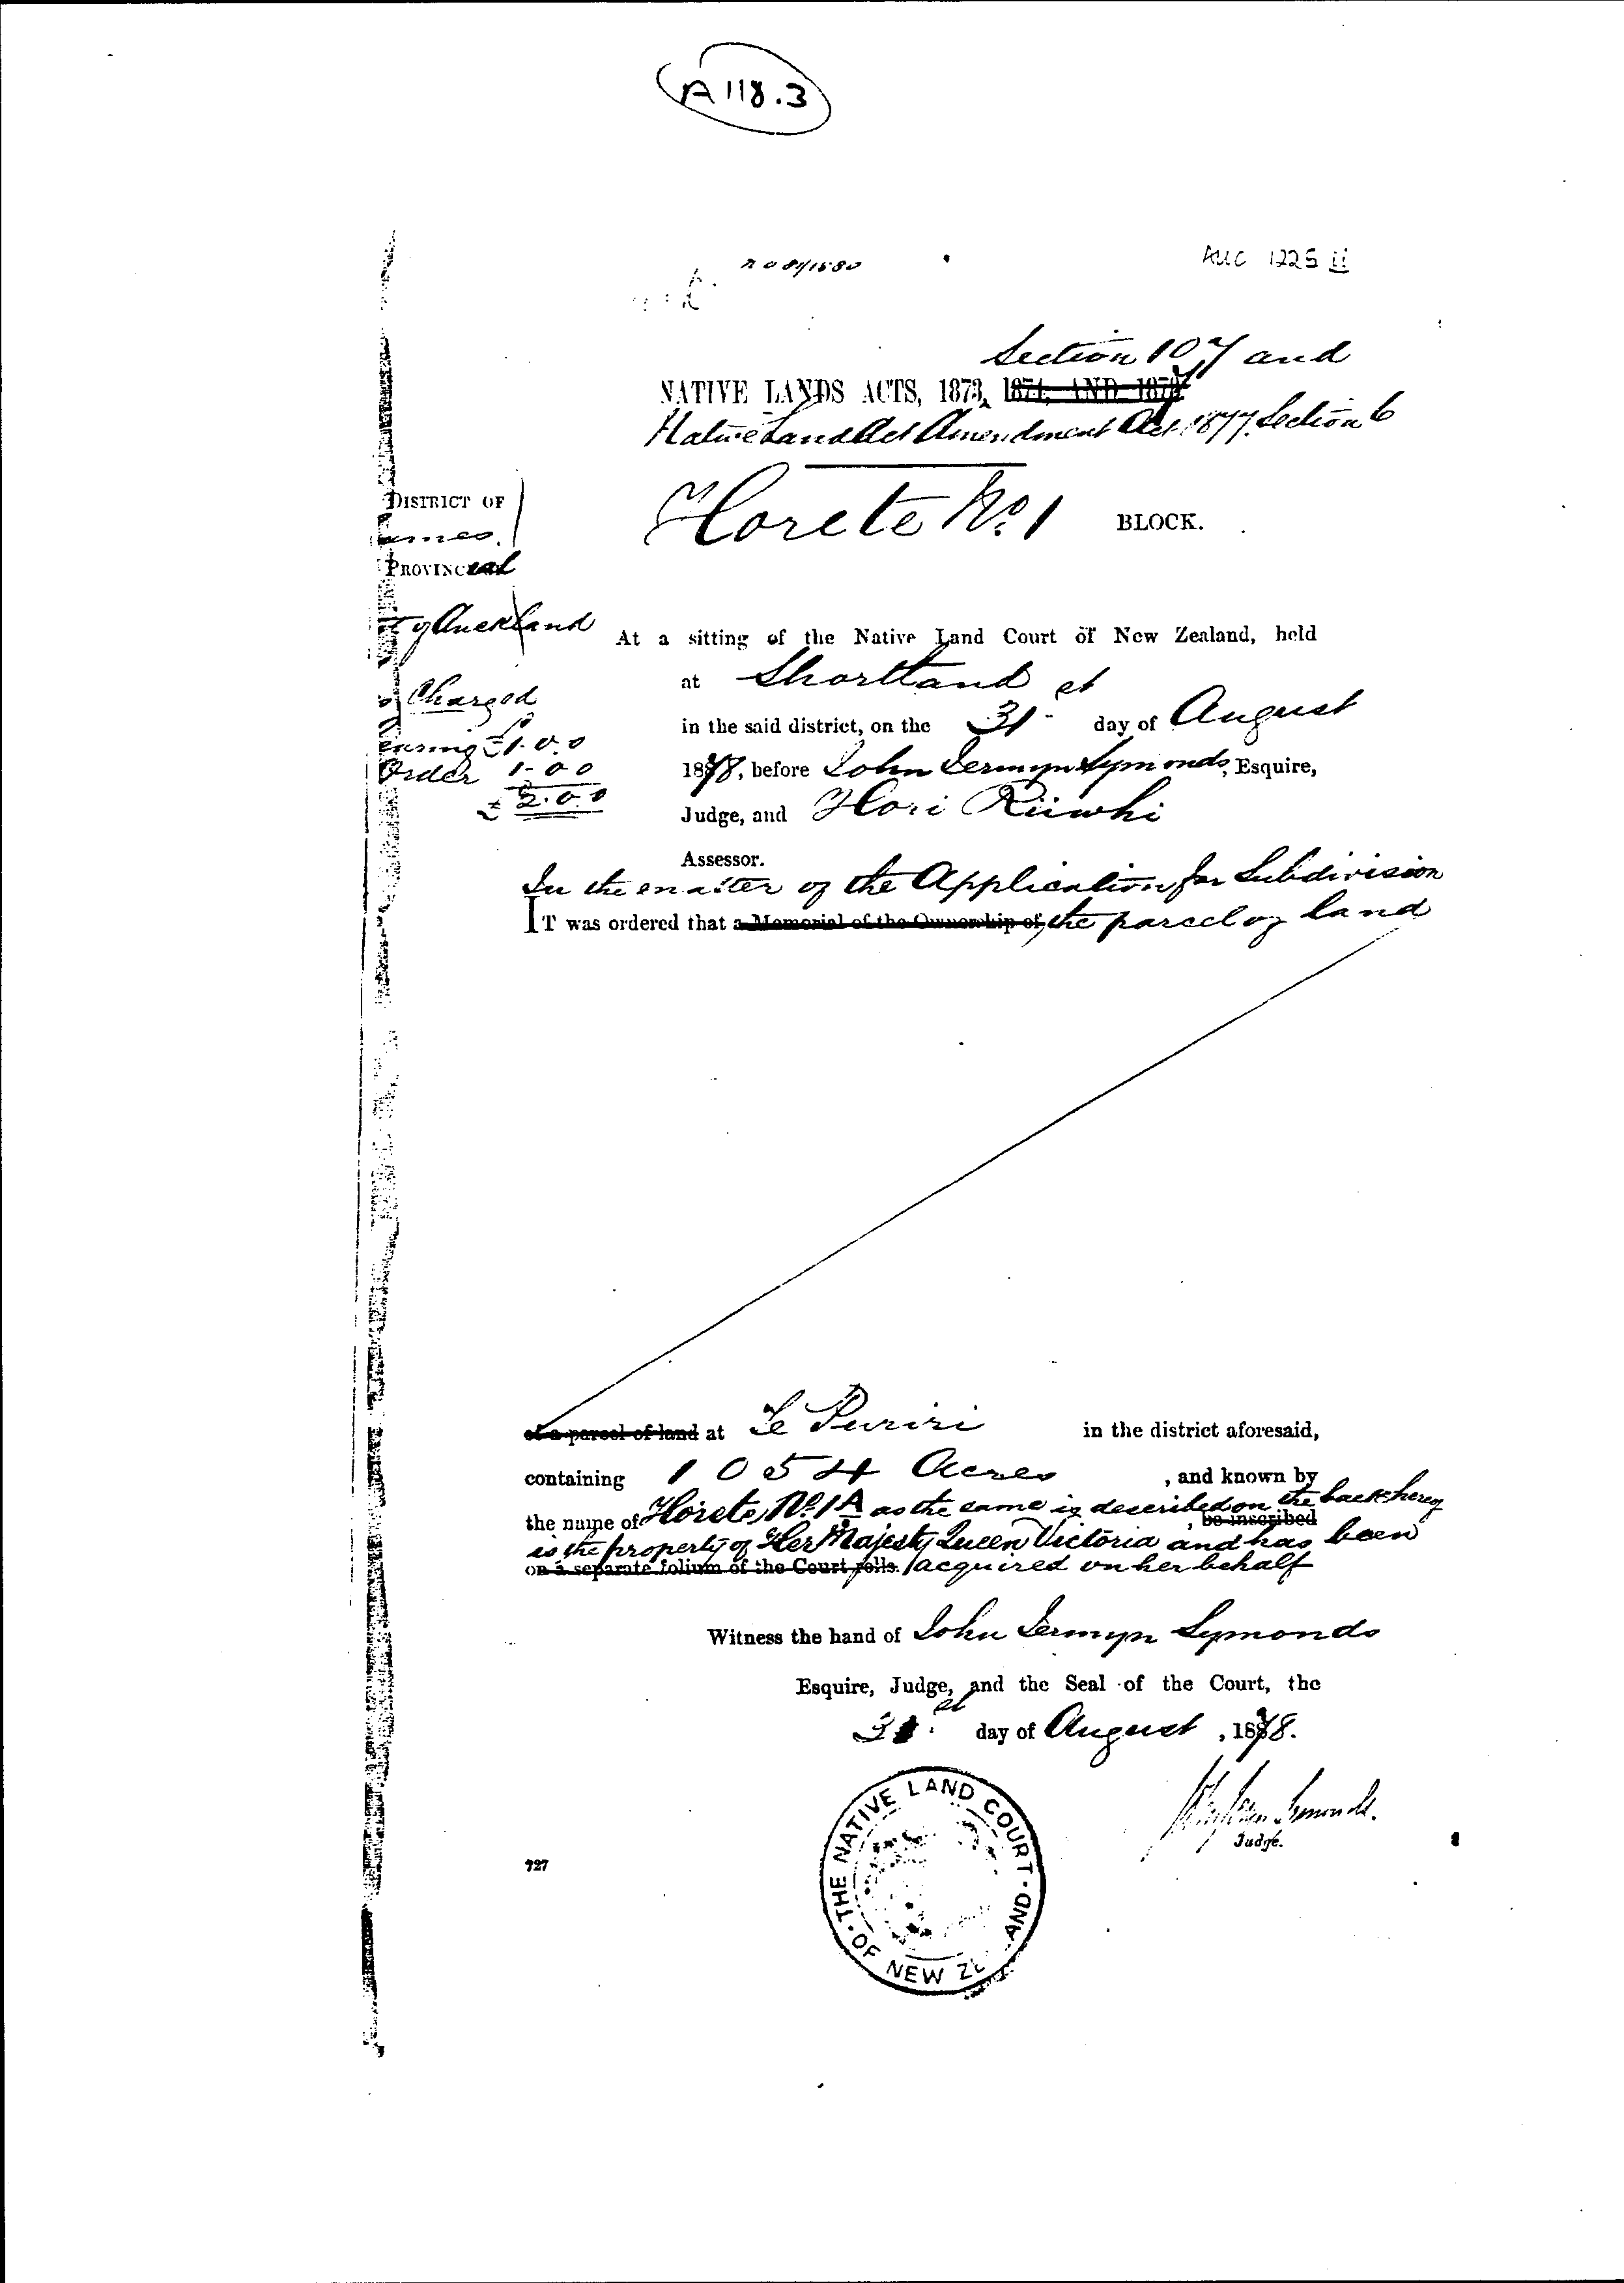 A 118.3
AUC 1225 ii
Section 107 and
NATIVE LANDS ACTS, 1873, 1874, AND 1878
Native Land Act Amendment Act 1877 Section 6
DISTRICT OF
Thames.
Horete No. 1 BLOCK.
PROVINCIAL
of Auckland
At a sitting of the Native Land Court of New Zealand, held
at Shortland
Charged
in the said district, on the 31st day of August
earing £1.0.0
1878, before John Jermyn Symonds, Esquire,
Order 1-0 0
£2.0.0
Judge, and Hori Riiwhi
Assessor.
In the matter of the Application for Subdivision
IT was ordered that a Memorial of the Ownership of, the parcel of land
of a parcel of land at Te Puriri in the district aforesaid,
containing 1054 Acres, and known by
the name of Horete No. 1A as the same is described on the back hereof, be inscribed
is the property of Her Majesty Queen Victoria and has been
on a separate folium of the Court rolls. acquired on her behalf
Witness the hand of John Jermyn Symonds
Esquire, Judge, and the Seal of the Court, the
31st day of August, 1878.
THE NATIVE LAND COURT OF NEW ZEALAND
Judge.
727